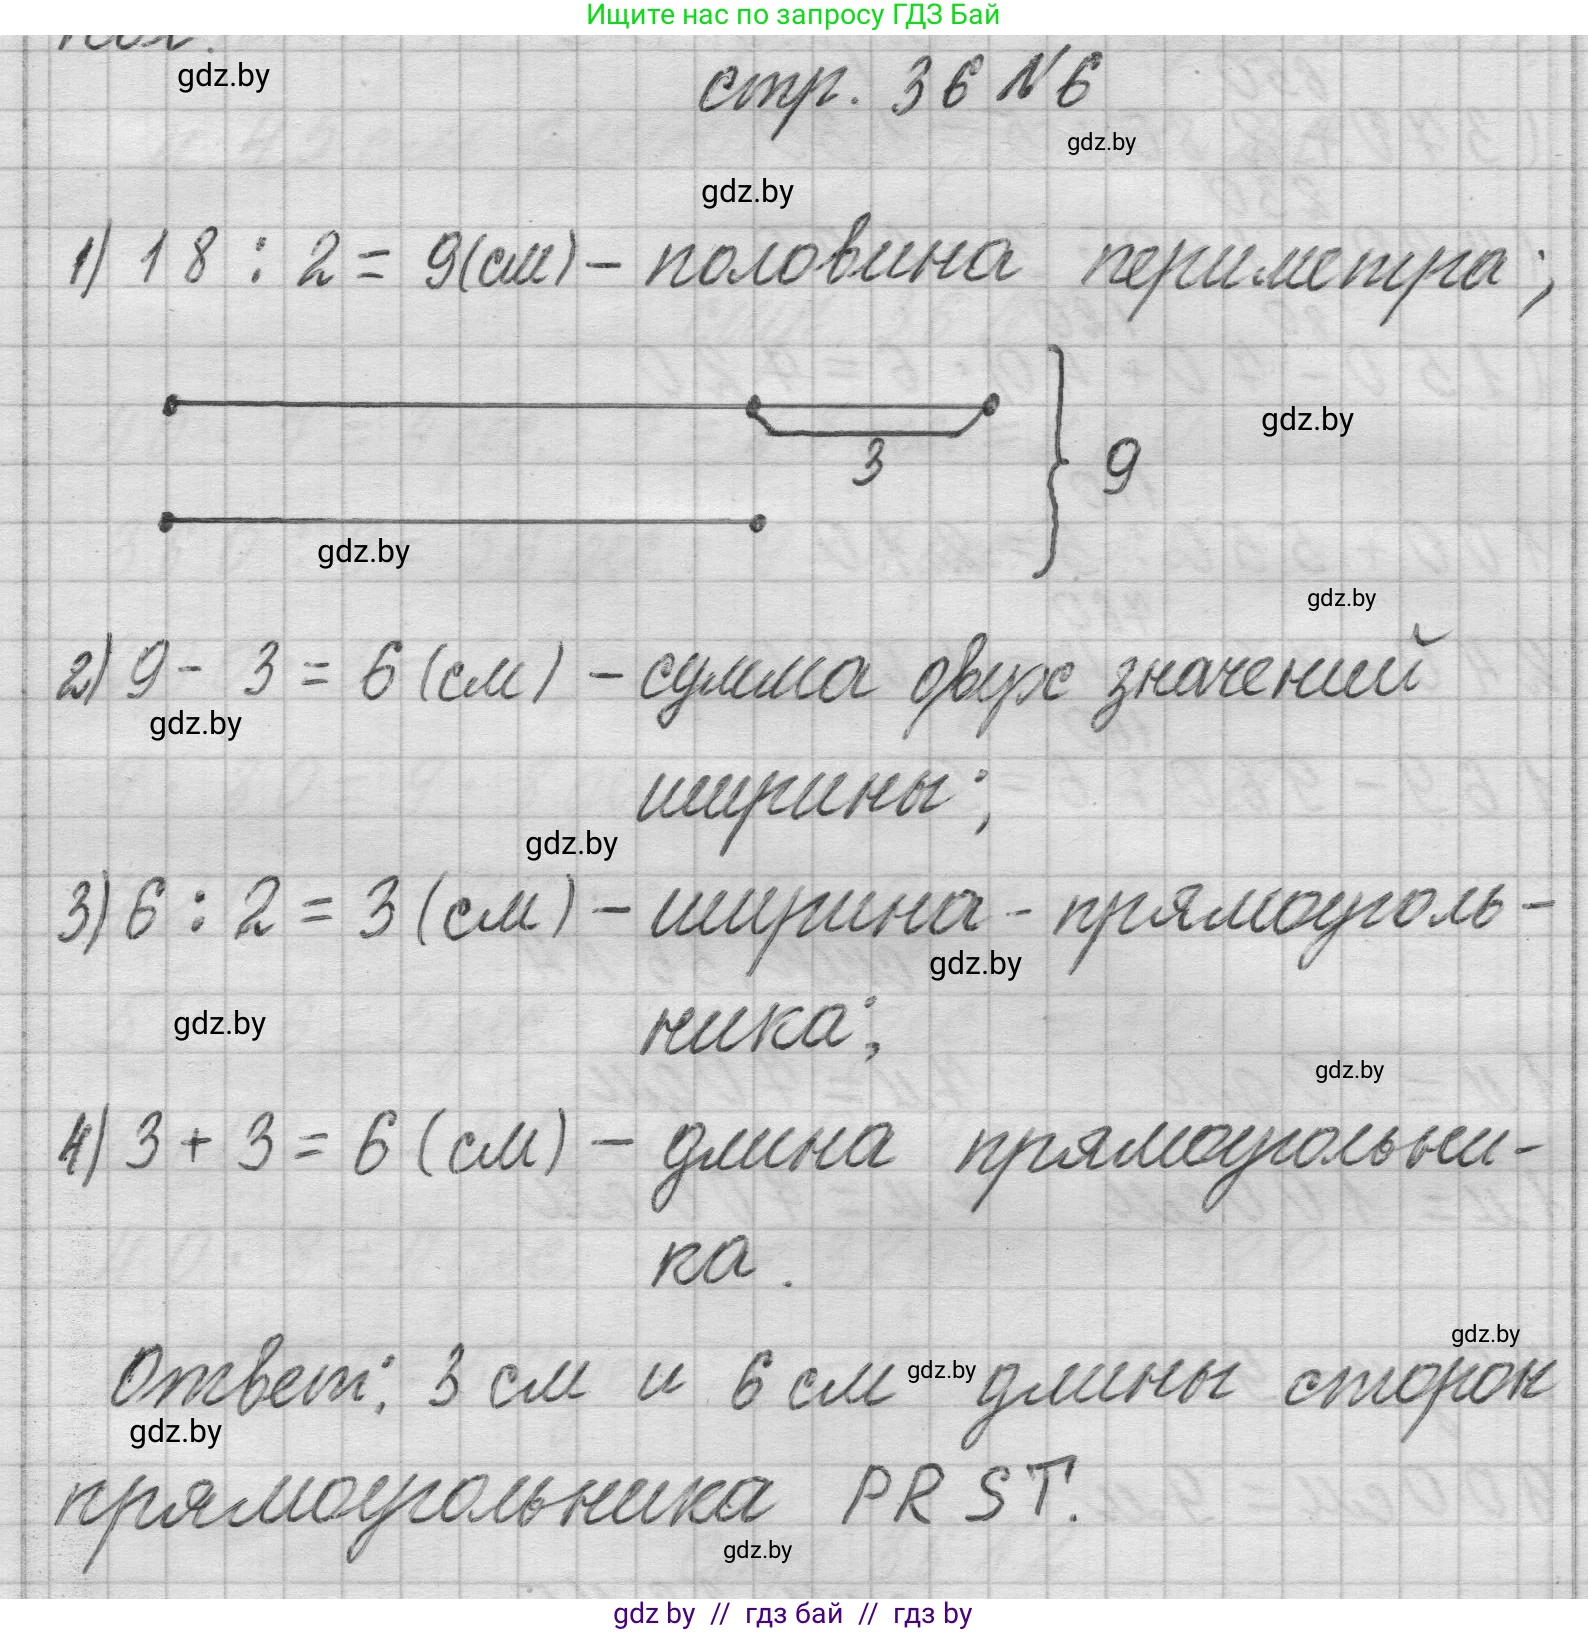 Ищите нас по запросу ГДЗ Бай
gdz.by
стр. 36 №6
gdz.by
gdz.by
1) 18 : 2 = 9(см) – половина периметра;
gdz.by
3
9
gdz.by
gdz.by
2) 9 - 3 = 6 (см) – сумма двух значений
gdz.by
ширины;
gdz.by
3) 6 : 2 = 3 (см) – ширина - прямоуголь-
gdz.by
gdz.by
ника;
gdz.by
4) 3 + 3 = 6 (см) – длина прямоугольни-
ка.
gdz.by
Ответ: 3 см и 6 см gdz.by длины сторон
gdz.by
прямоугольника PRST.
gdz.by
gdz by // гдз бай // гдз by